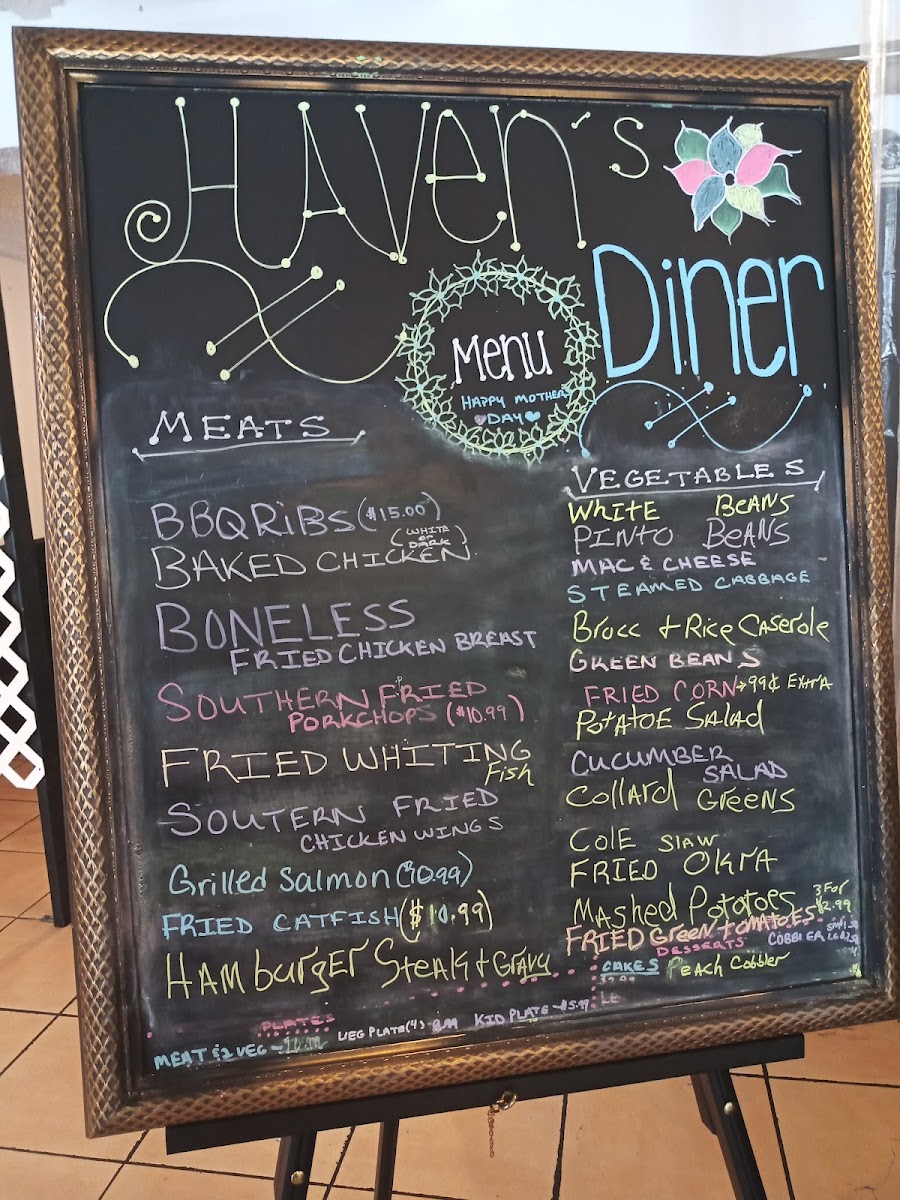 HAVEN'S
Diner
Menu
HAPPY MOTHERS
DAY
MEATS
BBQ RiBS ($15.00)
BAKED CHICKEN (WHITE or DARK)
BONELESS
FRIED CHICKEN BREAST
SOUTHERN FRIED
PORKCHOPS ($10.99)
FRIED WHITING
Fish
SOUTERN FRIED
CHICKEN WINGS
Grilled Salmon (10.99)
FRIED CATFISH ($10.99)
HAMburgER Steak + Gravy
VEGETABLES
WhItE BEANS
PINTO BEANS
MAC & CHEESE
STEAMED CABBAGE
Brocc + Rice CASerole
GREEN BEANS
FRIED CORN → 99¢ Extra
POtAtOE SALAd
CUCUMBER
SALAD
Collard GREENS
COlE Slaw
FRIED OkrA
MAShed Pototoes 3 For $2.99
FRIED Green tOMATOES
DESSERTS
COBBlER
CAKES
Peach Cobbler
PLATES
MEAT & 2 VEG -
VEG PLATE (4) -
KID PLATE - $5.99